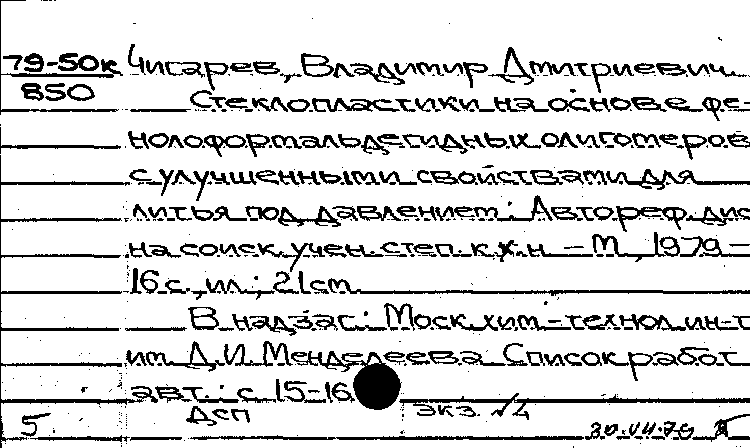 79-50к Чигарев, Владимир Дмитриевич
850 Стеклопластики на основе фе-
нолоформальдегидных олигомеров
с улучшенными свойствами для
литья под давлением: Автореф. дис
на соиск. учен. степ. к.х.н. - М, 1979 -
16 с., ил.; 21 cm.
В надзаг.: Моск. хим.-технол. ин-т
им. Д. И. Менделеева. Список работ
авт.: с 15-16
ДСП экз. №4
5.